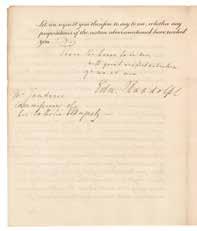 Let me request you therefore to say to me, whether any
propositions of the nature above mentioned have reached
you.
I have the honor to be Sir,
with great respect
Edm. Randolph
Mr. Jaudenes
Commissioner of
his Catholic Majesty